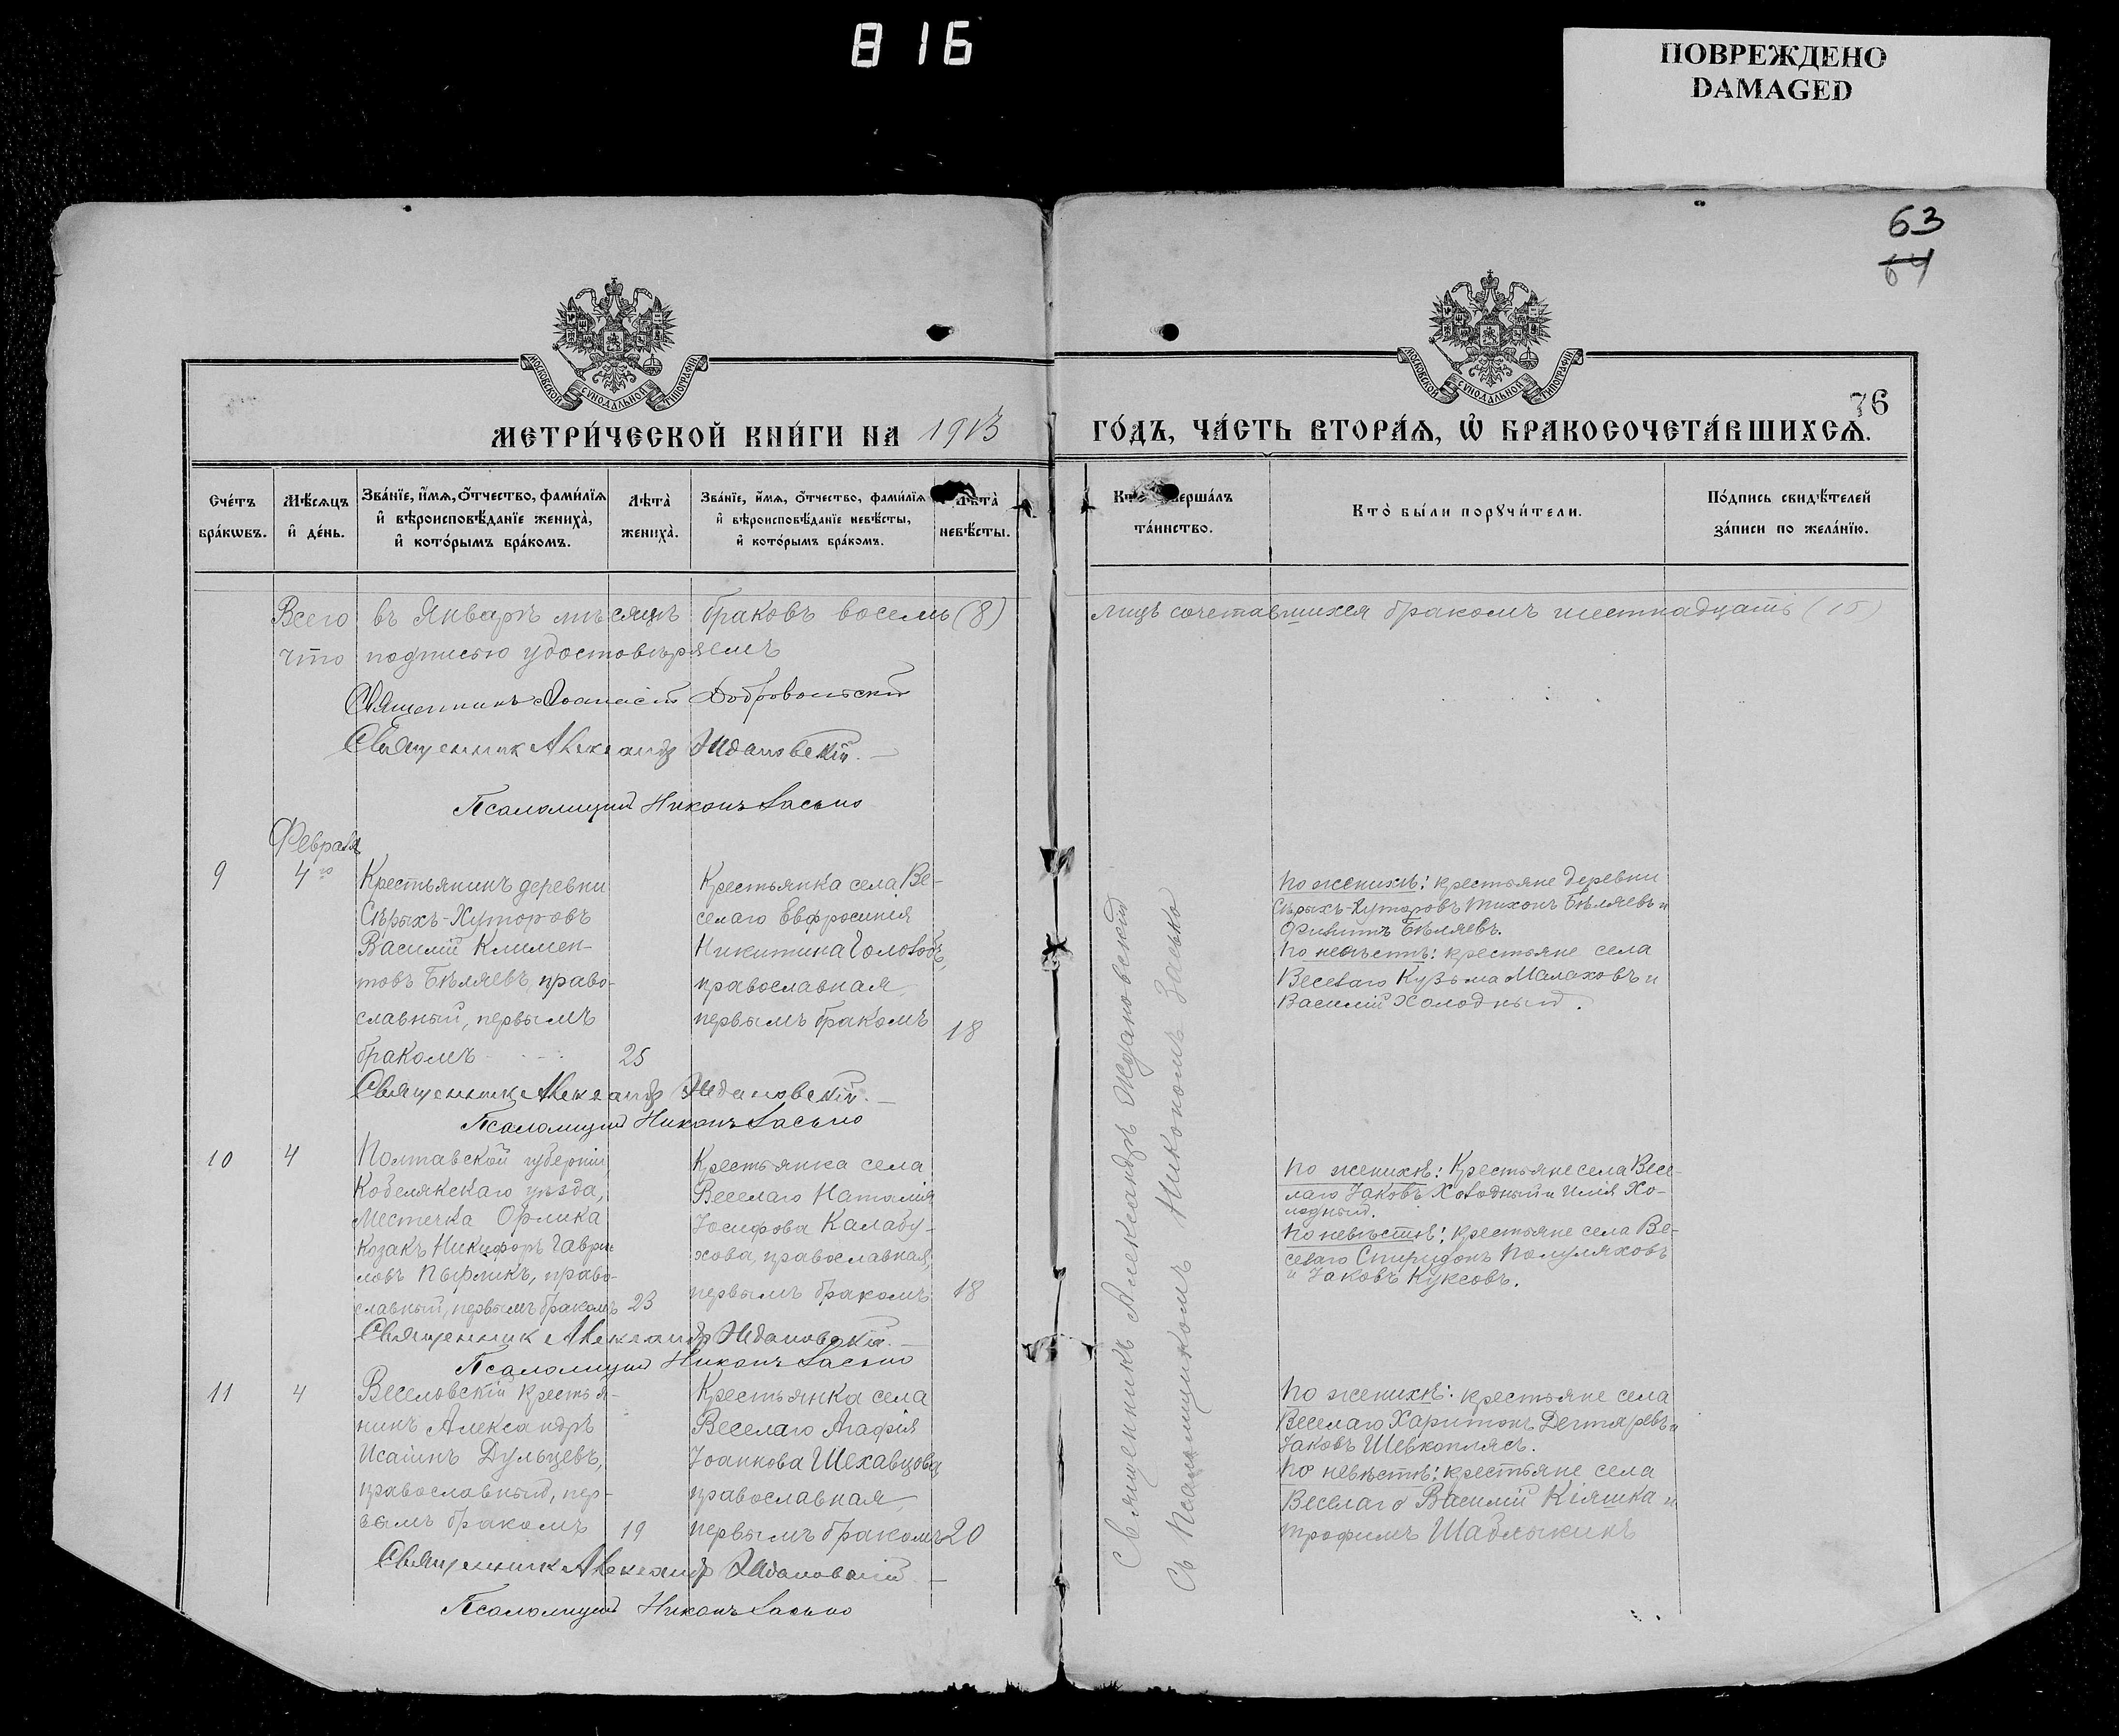 816
ПОВРЕЖДЕНО
DAMAGED
63
64
76
МОСКОВСКОЙ СУНОДАЛЬНОЙ ТИПОГРАФІИ
МОСКОВСКОЙ СУНОДАЛЬНОЙ ТИПОГРАФІИ
МЕТРИ́ЧЕСКОЙ КНИ́ГИ НА 1913
ГО́ДЪ, ЧА́СТЬ ВТОРА́Ѧ, Ѽ БРАКОСОЧЕТА́ВШИХСѦ.
Сче́тъ бра́кωвъ.
Мѣ́сѧцъ и҆ де́нь.
Зва́нїе, и҆́мѧ, ѻ҆́тчество, фами́лїѧ
и҆ вѣроисповѣ́данїе жениха̀,
и҆ кото́рымъ бра́комъ.
Лѣта̀ жениха̀.
Зва́нїе, и҆́мѧ, ѻ҆́тчество, фами́лїѧ
и҆ вѣроисповѣ́данїе невѣ́сты,
и҆ кото́рымъ бра́комъ.
Лѣта̀ невѣ́сты.
Кт ершáлъ
та́инство.
Кто̀ бы́ли порꙋчи́тели.
По́дпись свидѣ́телей
за́писи по жела́нїю.
Всего въ Январѣ мѣсяцѣ браковъ восемь (8)
лицъ сочетавшихся бракомъ шестнадцать
что подписью удостовѣряемъ
Священникъ Добровольскій
Священник Александр Ждановскій.
Псаломщик Никонъ Засько
Февраля
9
4го
Крестьянинъ деревни
Сѣрыхъ-Хуторовъ
Василій Климен-
товъ Бѣляевъ, право-
славный, первымъ
бракомъ
25
Крестьянка села Ве-
селаго Евфросинія
Никитина Головобъ,
православная,
первымъ бракомъ
18
По женихѣ: крестьяне деревни
Сѣрыхъ-Хуторовъ Тихонъ Бѣляевъ и
Филиппъ Бѣляевъ.
По невѣстѣ: крестьяне села
Веселаго Кузьма Малаховъ и
Василій Холодный.
Священник Александр Ждановскій.
Псаломщик Никонъ Засько
10
4
Полтавской губерніи
Кобелякскаго уѣзда,
Местечка Орлика
Козакъ Никифоръ Гаври-
ловъ Пырликъ, право-
славный, первымъ бракомъ
23
Крестьянка села
Веселаго Наталія
Іосифова Калабу-
хова, православная,
первымъ бракомъ
18
По женихѣ: Крестьяне села Весе-
лаго Іаковъ Холодный и Илія Хо-
лодный.
По невѣстѣ: крестьяне села Ве-
селаго Спиридонъ Полуляховъ
и Іаковъ Куксовъ.
Священник Александр Ждановскій.
Псаломщик Никонъ Засько
11
4
Веселовскій крестья-
нинъ Александръ
Исаіинъ Дульцевъ,
православный, пер-
вымъ бракомъ
19
Крестьянка села
Веселаго Агафія
Іоаннова Шехавцова
православная,
первымъ бракомъ
20
По женихѣ: крестьяне села
Веселаго Харитонъ Дегтяревъ и
Іаковъ Шевкоплясъ.
По невѣстѣ: крестьяне села
Веселаго Василій Кіяшка и
Трофимъ Шаблыкинъ
Священник Александр Ждановскій
Псаломщик Никонъ Засько
Священникъ Александръ Ждановскій
Съ Псаломщикомъ Никономъ Засько